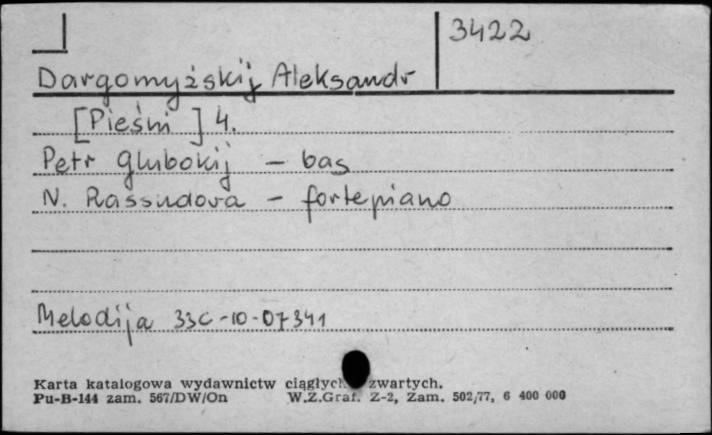 3422
Dargomyżskij Aleksandr
[Pieśni] 4.
Petr Głubokij - bas
N. Rassudova - fortepiano
Melodija 33C-10-07341
Karta katalogowa wydawnictw ciągłych zwartych.
Pu-B-144 zam. 567/DW/On W.Z.Graf. Z-2, Zam. 502/77, 6 400 000